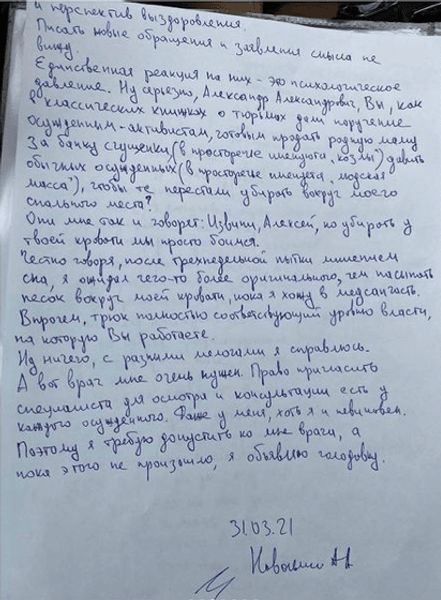 и перспектив выздоровления.
Писать новые обращения и заявления смысла не
вижу.
Единственная реакция на них - это психологическое
давление. Ну серьезно, Александр Александрович, Вы, как
в классических книжках о тюрьмах дали поручение
осужденным-активистам, готовым продать родную маму
за банку сгущенки, (в просторечье именуются "козлы") давить
обычных осужденных (в просторечье именуются "людская
масса"), чтобы те перестали убирать вокруг моего
спального места?
Они мне так и говорят: Извини, Алексей, но убирать у
твоей кровати мы просто боимся.
Честно говоря, после трехнедельной пытки лишением
сна, я ожидал чего-то более оригинального, чем насыпать
песок вокруг моей кровати, пока я хожу в медсанчасть.
Впрочем, трюк полностью соответствующий уровню власти,
на которую Вы работаете.
Ну ничего, с разными мелочами я справлюсь.
А вот врач мне очень нужен. Право пригласить
специалиста для осмотра и консультации есть у
каждого осужденного. Даже у меня, хоть я и невиновен.
Поэтому я требую допустить ко мне врача, а
пока этого не произошло, я объявляю голодовку.
31.03.21
Навальный А А